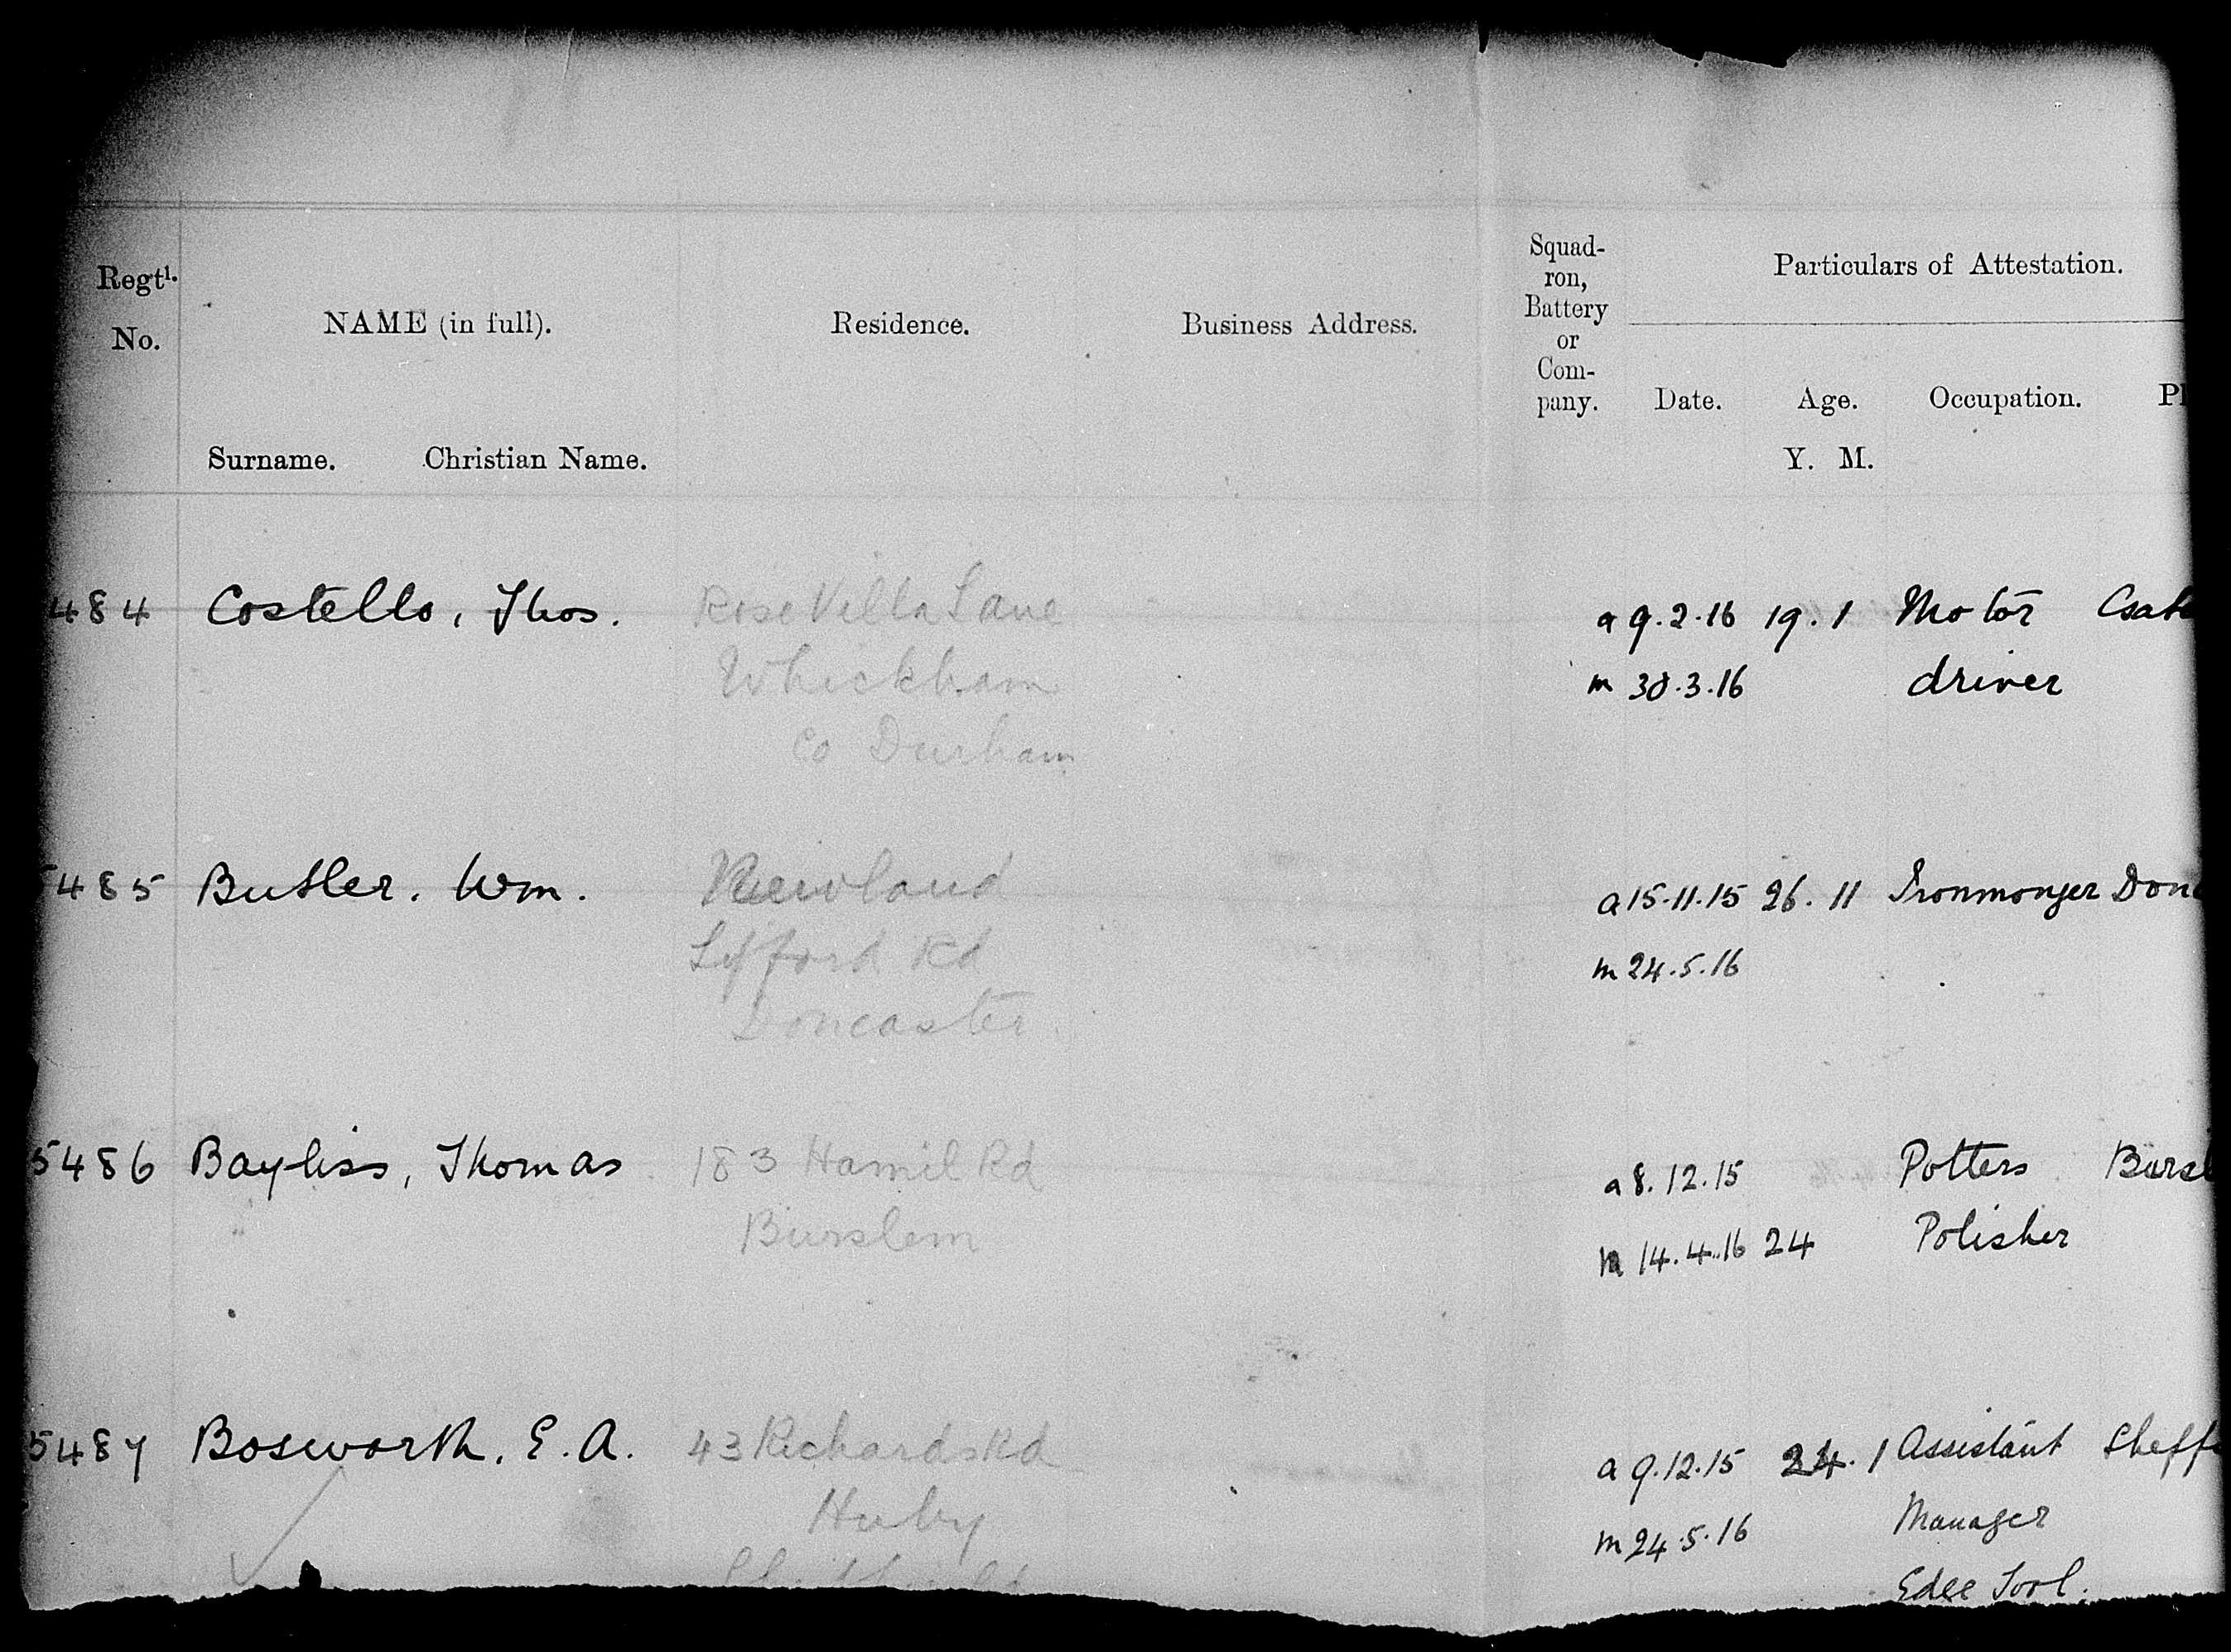 Regtl. No.
NAME (in full).
Surname. Christian Name.
Residence.
Business Address.
Squad-
ron,
Battery
or
Com-
pany.
Particulars of Attestation.
Date. Age. Occupation. Pl
Y. M.
484 Costello, Thos. Rose Villa Lane a 9.2.16 19.1 Motor
Whickham m 30.3.16 driver
Co Durham
5485 Butler. Wm. a 15.11.15 26.11 Ironmonger Donc
Rd m 24.5.16
Doncaster
5486 Bayliss, Thomas 183 Hamil Rd a 8.12.15 Potters Bursl
Burslem m 14.4.16 24 Polisher
5487 Bosworth. E. A. 43 Richards Rd a 9.12.15 24.1 Assistant Sheff
m 24.5.16 Manager
Edge Tool.